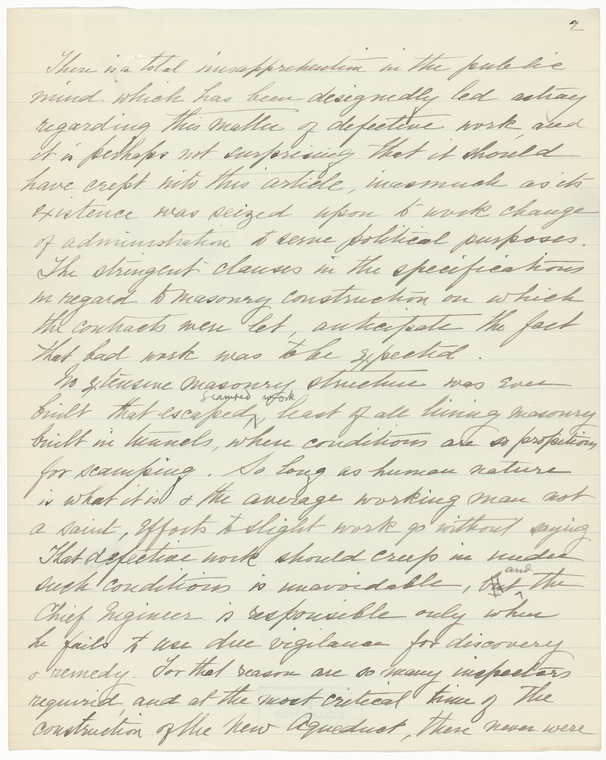 2
There is a total misapprehension in the public
mind which has been designedly led astray
regarding this matter of defective work, and
it is perhaps not surprising that it should
have crept into this article, inasmuch as its
existence was seized upon to work change
of administration to serve political purposes.
The stringent clauses in the specifications
in regard to masonry construction on which
the contracts were let, anticipate the fact
that bad work was to be expected.
No extensive masonry structure was ever
scamped work
built that escaped, least of all lining masonry
built in tunnels, where conditions are so propitious
for scamping. So long as human nature
is what it is & the average working man not
a saint, efforts to slight work go without saying
That defective work should creep in under
and
such conditions is unavoidable, but the
Chief Engineer is responsible only when
he fails to use due vigilance for discovery
& remedy. For that reason are so many inspectors
required, and at the most critical time of the
construction of the New Aqueduct, there never were